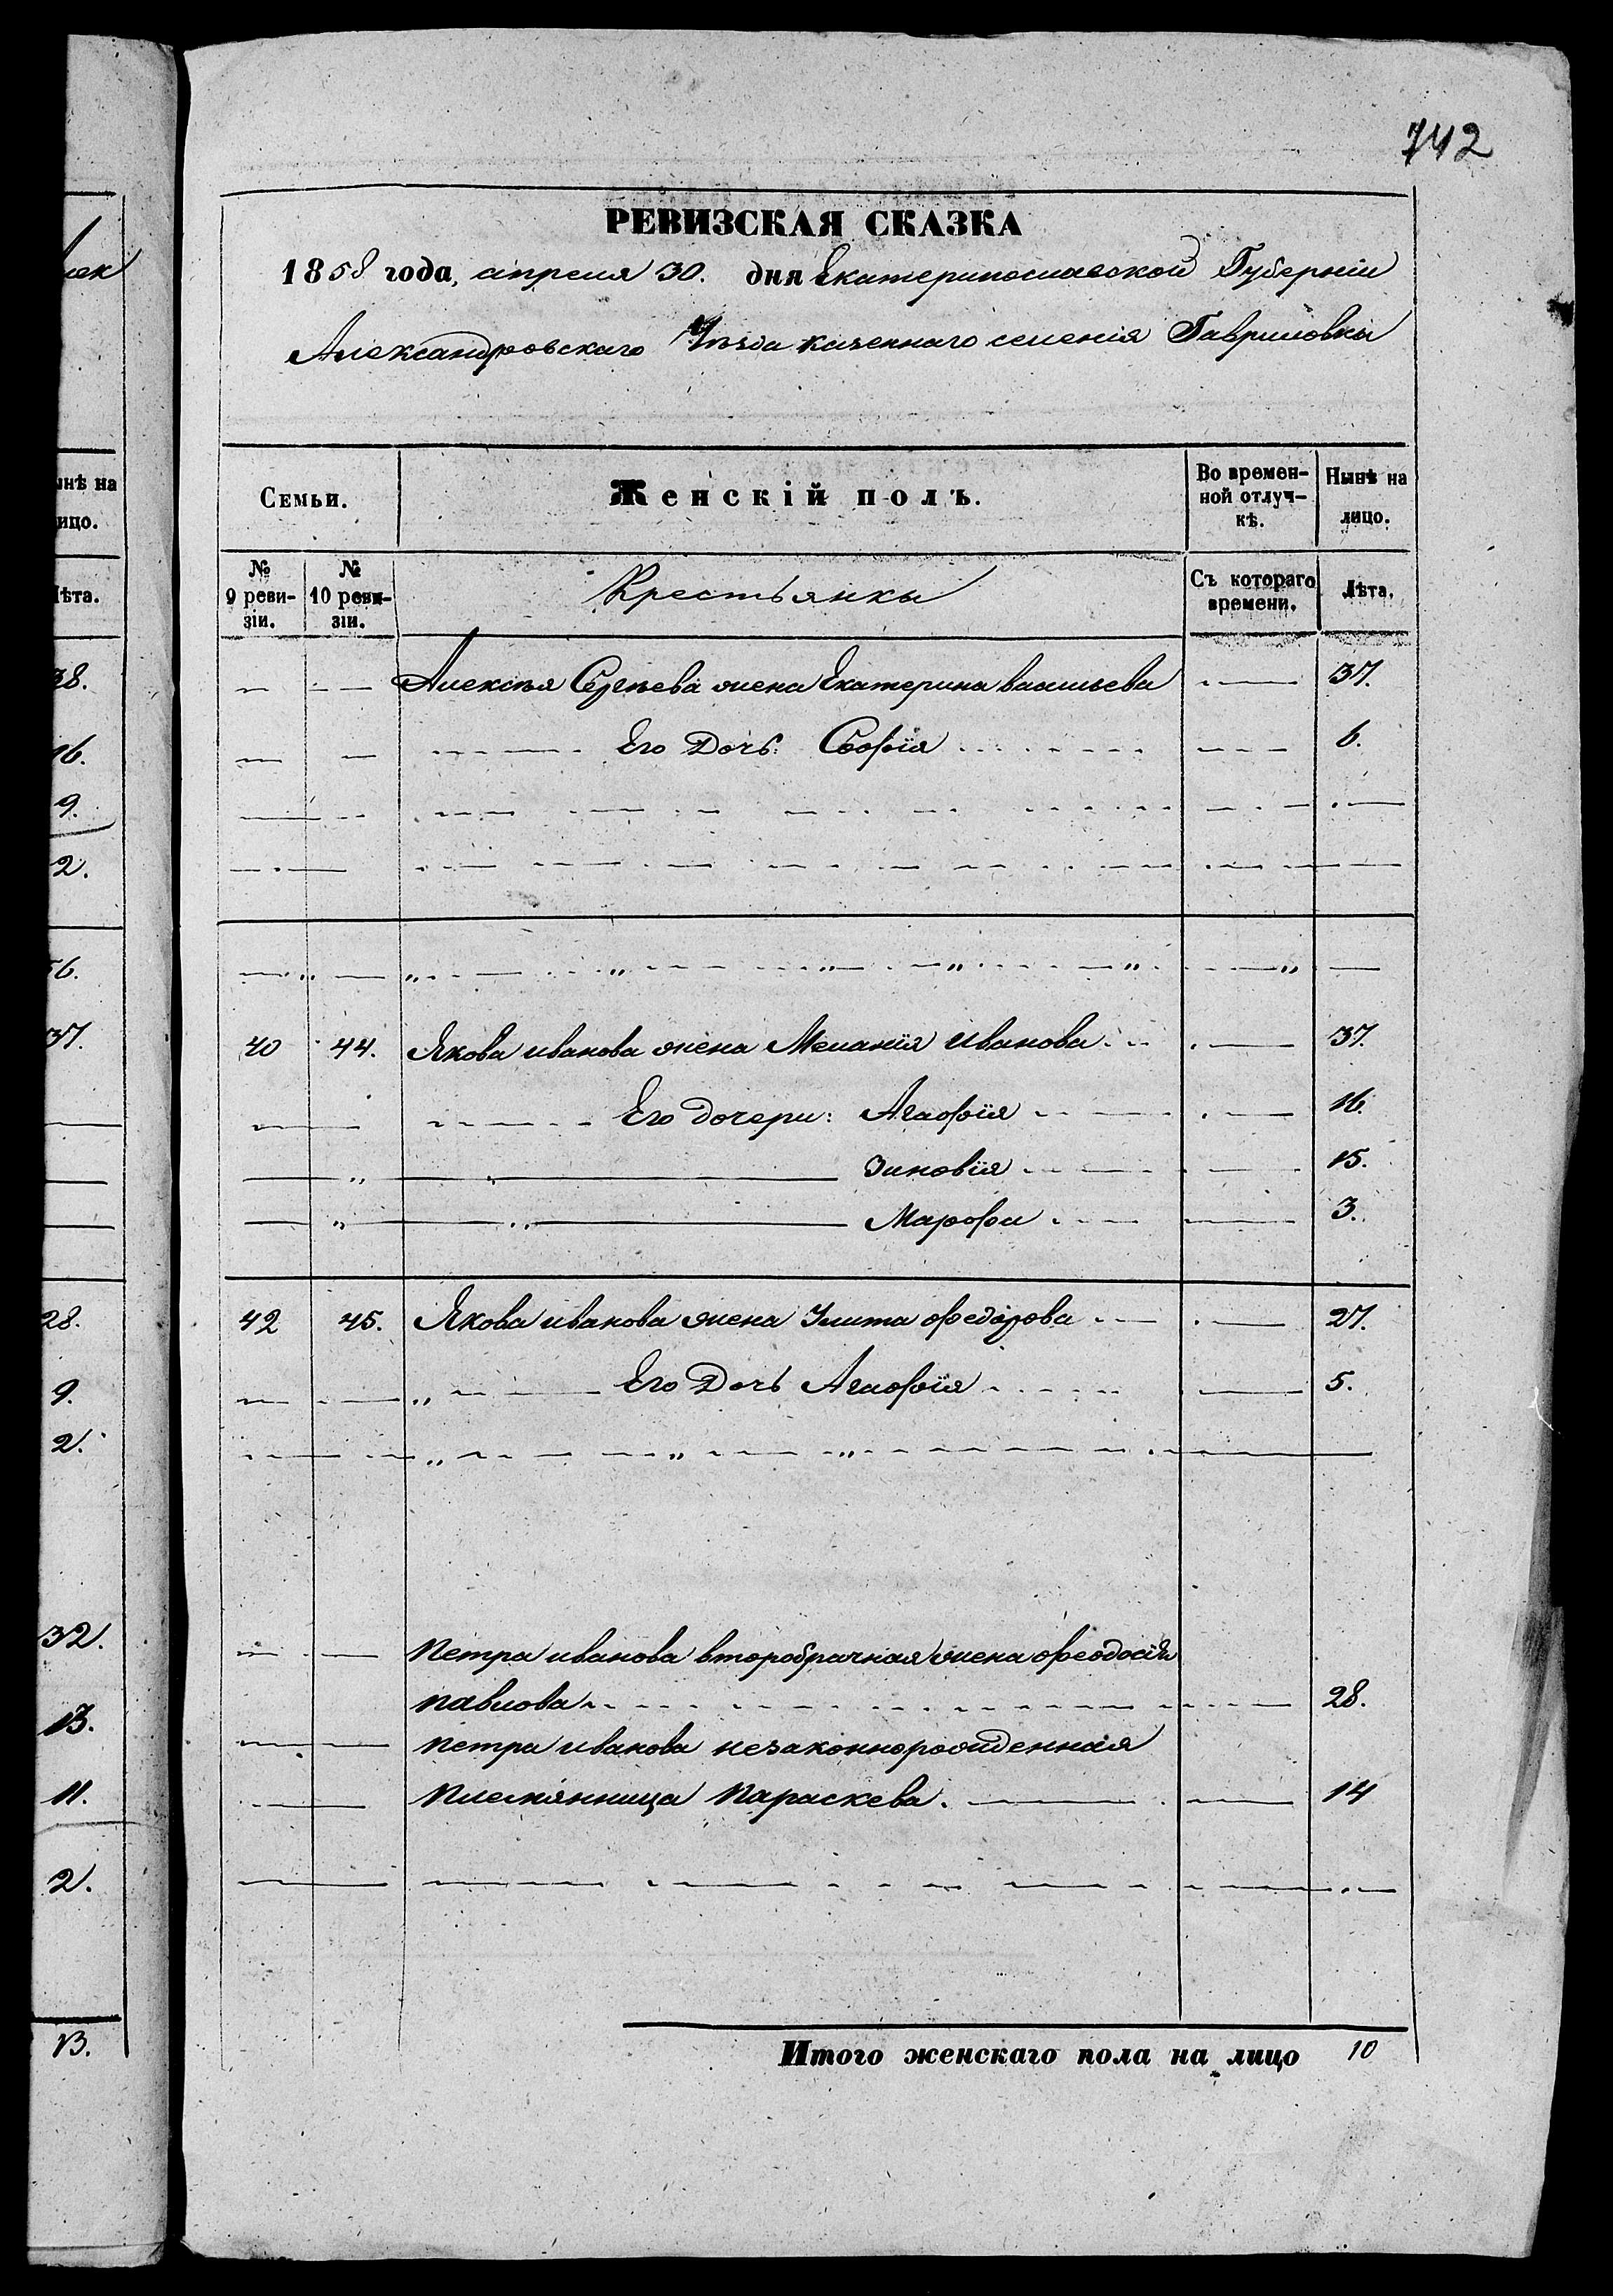 742
РЕВИЗСКАЯ СКАЗКА
1858 года, апреля 30. дня Екатеринославской Губерніи
Александровскаго Уѣзда казеннаго селенія Гавриловки
Семьи.
Женскій полъ.
Во времен-
ной отлуч-
кѣ.
Нынѣ на
лицо.
№
9 реви-
зіи.
№
10 реви-
зіи.
Крестьянки
Съ котораго
времени.
Лѣта.
Алексѣя Сергѣева жена Екатерина васильева 37.
Его Дочь: Софія 6.
40 44. Якова иванова жена Меланія Иванова 37.
Его дочери: Агафія 16.
Зиновія 15.
Марфа 3.
42 45. Якова иванова жена Улита федорова 27.
Его Дочь Агафія 5.
Петра иванова второбрачная жена феодосія
павлова 28.
петра иванова незаконнорожденная
племянница Параскева. 14
Итого женскаго пола на лицо 10
ынѣ на
ицо.
ѣта.
38.
16.
9.
2.
56.
37.
28.
9.
2.
32.
13.
11.
2.
13.